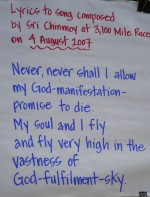 Lyrics to song composed
by Sri Chinmoy at 3,100 Mile Race
on 4 August 2007
Never, never shall I allow
my God-manifestation-
promise to die.
My soul and I fly
and fly very high in the
vastness of
God-fulfilment-sky.